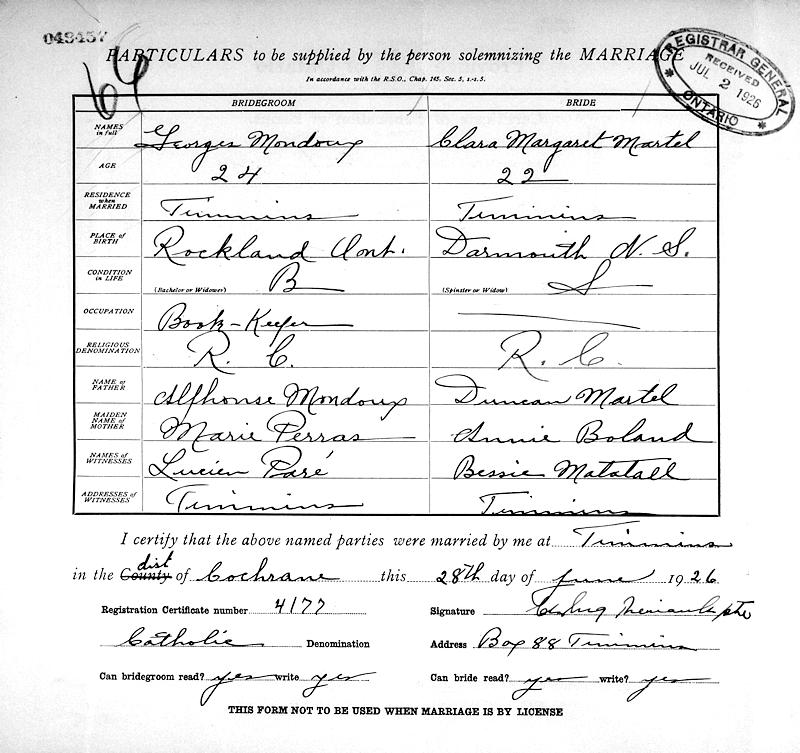 049457
64
PARTICULARS to be supplied by the person solemnizing the MARRIAGE
In accordance with the R.S.O., Chap. 145, Sec. 5, s.-s. 5.
REGISTRAR GENERAL
RECEIVED
JUL 2 1926
ONTARIO
BRIDEGROOM BRIDE
NAMES in full Georges Mondoux Clara Margaret Martel
AGE 24 22
RESIDENCE when MARRIED Timmins Timmins
PLACE of BIRTH Rockland Ont. Darmouth N. S.
CONDITION in LIFE (Bachelor or Widower) B (Spinster or Widow) S
OCCUPATION Book-Keeper
RELIGIOUS DENOMINATION R. C. R. C.
NAME of FATHER Alphonse Mondoux Duncan Martel
MAIDEN NAME of MOTHER Marie Perras Annie Boland
NAMES of WITNESSES Lucien Paré Bessie Matatall
ADDRESSES of WITNESSES Timmins Timmins
I certify that the above named parties were married by me at Timmins
in the County dist of Cochrane this 28th day of June 1926
Registration Certificate number 4177 Signature Theriault ptre
Catholic Denomination Address Box 88 Timmins
Can bridegroom read? yes write yes Can bride read? yes write? yes
THIS FORM NOT TO BE USED WHEN MARRIAGE IS BY LICENSE